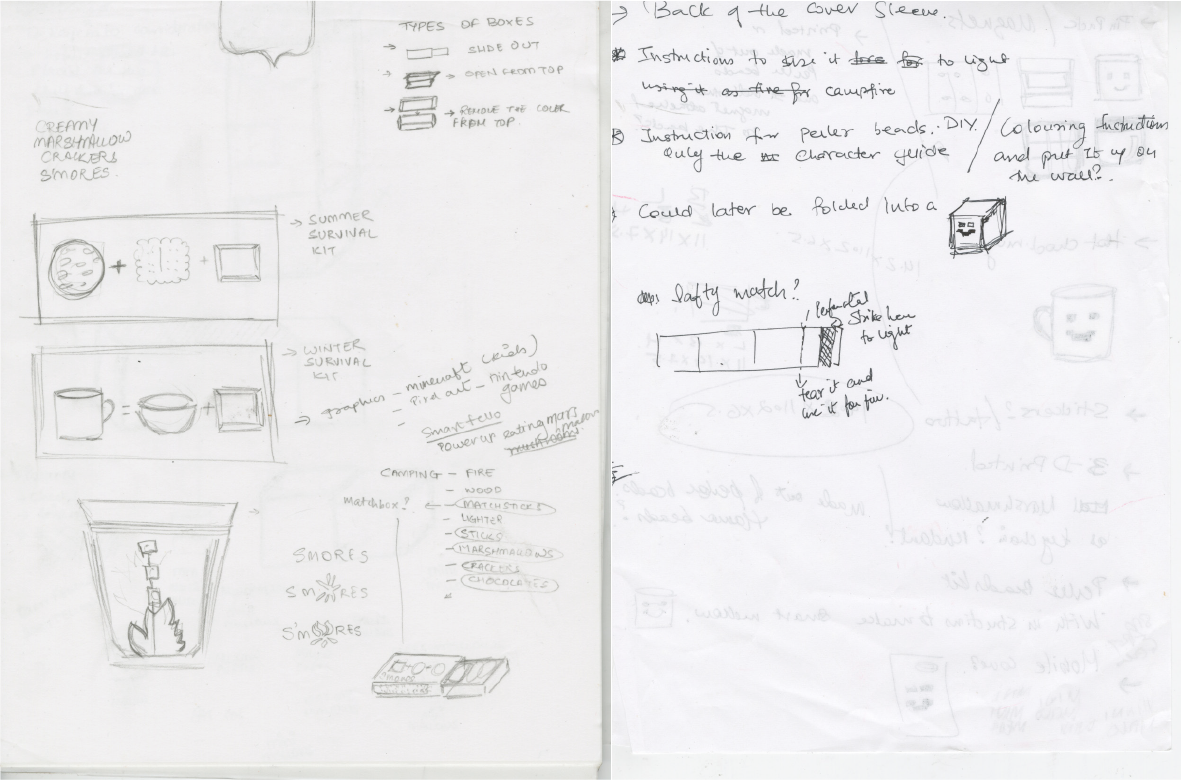 TYPES OF BOXES
SLIDE OUT
OPEN FROM TOP
REMOVE THE COVER
FROM TOP.
CREAMY
MARSHMALLOW
CRACKERS
S'MORES.
SUMMER
SURVIVAL
KIT
WINTER
SURVIVAL
KIT
graphics - minecraft (kids)
- Pixel art - Nintendo
games
Smartfello
Power up eating
CAMPING - FIRE
- WOOD
Matchbox? - MATCHSTICKS
- LIGHTER
- STICKS
- MARSHMALLOWS
- CRACKERS
- CHOCOLATES
SMORES
SM RES
S'M RES
Back of the Cover Sleeve.
Instructions to use it to light
using it as fire for campfire
Instruction for Perler beads. DIY. / Colouring Instructions
Only the character guide
and put it up on
the wall?
Could later be folded into a
Safty match?
Strike here
to light
tear it and
use it for fire.